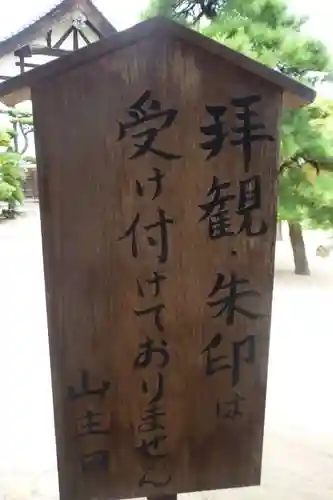 拝観・朱印は
受け付けておりません
山主